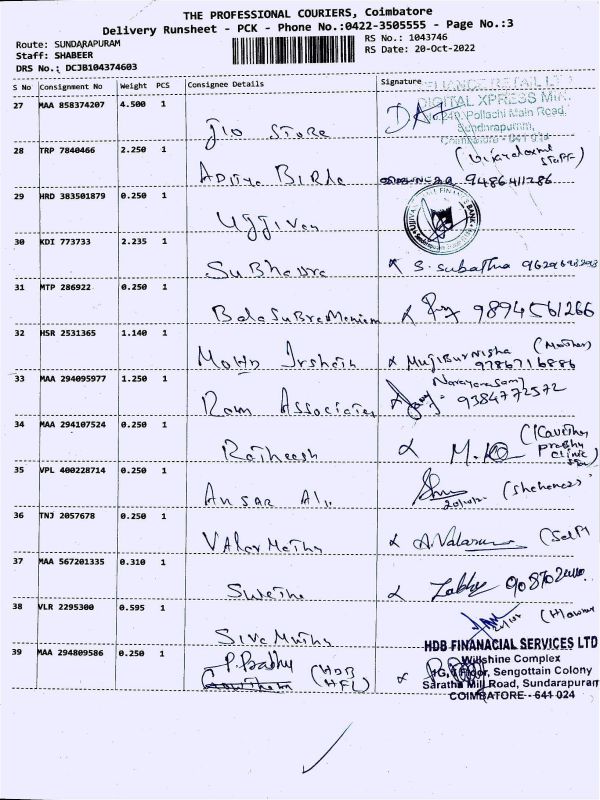 THE PROFESSIONAL COURIERS, Coimbatore
Delivery Runsheet - PCK - Phone No.:0422-3505555 - Page No.:3
Route: SUNDARAPURAM
RS No.: 1043746
Staff: SHABEER
RS Date: 20-Oct-2022
DRS No.: DCJB104374603
S No Consignment No Weight PCS Consignee Details Signature
27 MAA 858374207 4.500 1
DIGITAL XPRESS
Pollachi Main Road,
Sundrapuram,
Jio Store
28 TRP 7840466 2.250 1
(Vijayalaxmi
Staff)
Aditya Birla 9486411286
29 HRD 383501879 0.250 1
Uggivan
30 KDI 773733 2.235 1
S. Subathra
31 MTP 286922 0.250 1
Bala Subramaniam 9894561266
32 HSR 2531365 1.140 1
Mohd Irshath MujiBurNisha (Mother)
9786716886
33 MAA 294095977 1.250 1
Narayanasamy
Ram Associates 9384772572
34 MAA 294107524 0.250 1
Prabhu
Clinic
Ratheesh
35 VPL 400228714 0.250 1
Ansar Ali
36 TNJ 2057678 0.250 1
Valar Mathy A. Valar (Self)
37 MAA 567201335 0.310 1
Swetha
38 VLR 2295300 0.595 1
Siva Muthu
39 MAA 294809586 0.250 1
HDB FINANACIAL SERVICES LTD
Willshine Complex
1G, 1 Floor, Sengottain Colony
Saratha Mill Road, Sundarapuram
COIMBATORE - 641 024
P. Prabhu (HDB
HFL)